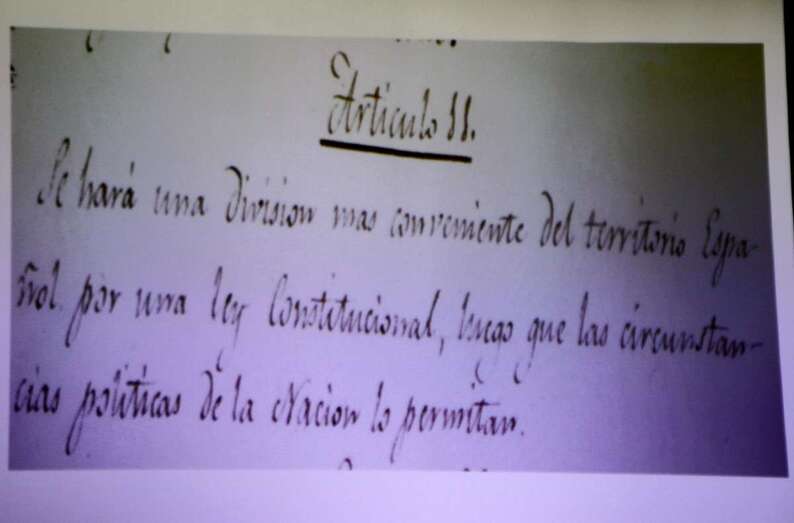 Articulo 11.
Se hará una division mas conveniente del territorio Espa-
ñol por una ley Constitucional, luego que las circunstan-
cias politicas de la Nacion lo permitan.